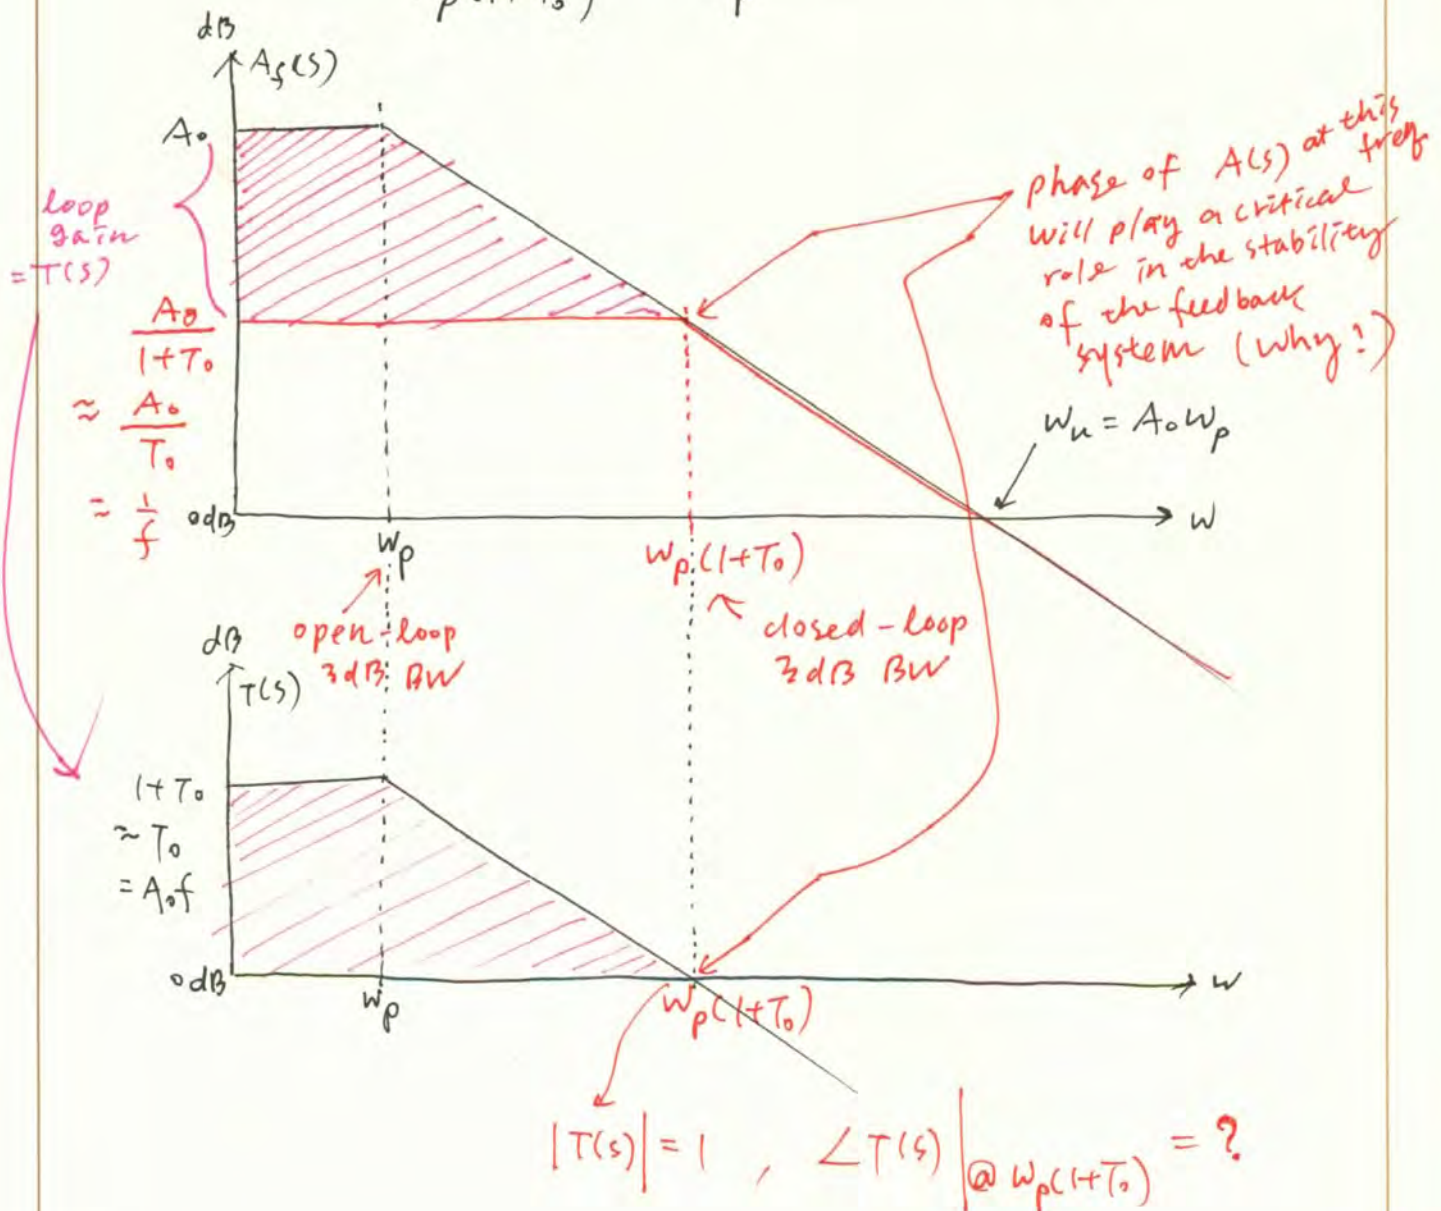 dB
A_f(s)
A₀
loop
gain
= T(s)
A₀
1+T₀
≈ A₀
T₀
≈ 1
f
phase of A(s) at this
freq
will play a critical
role in the stability
of the feedback
system (why?)
ω_u = A₀ω_p
0dB
ω
ω_p
ω_p(1+T₀)
open-loop
3dB BW
closed-loop
3dB BW
dB
T(s)
1+T₀
≈ T₀
= A₀f
0dB
ω
ω_p
ω_p(1+T₀)
|T(s)| = 1 , ∠T(s) |@ ω_p(1+T₀) = ?